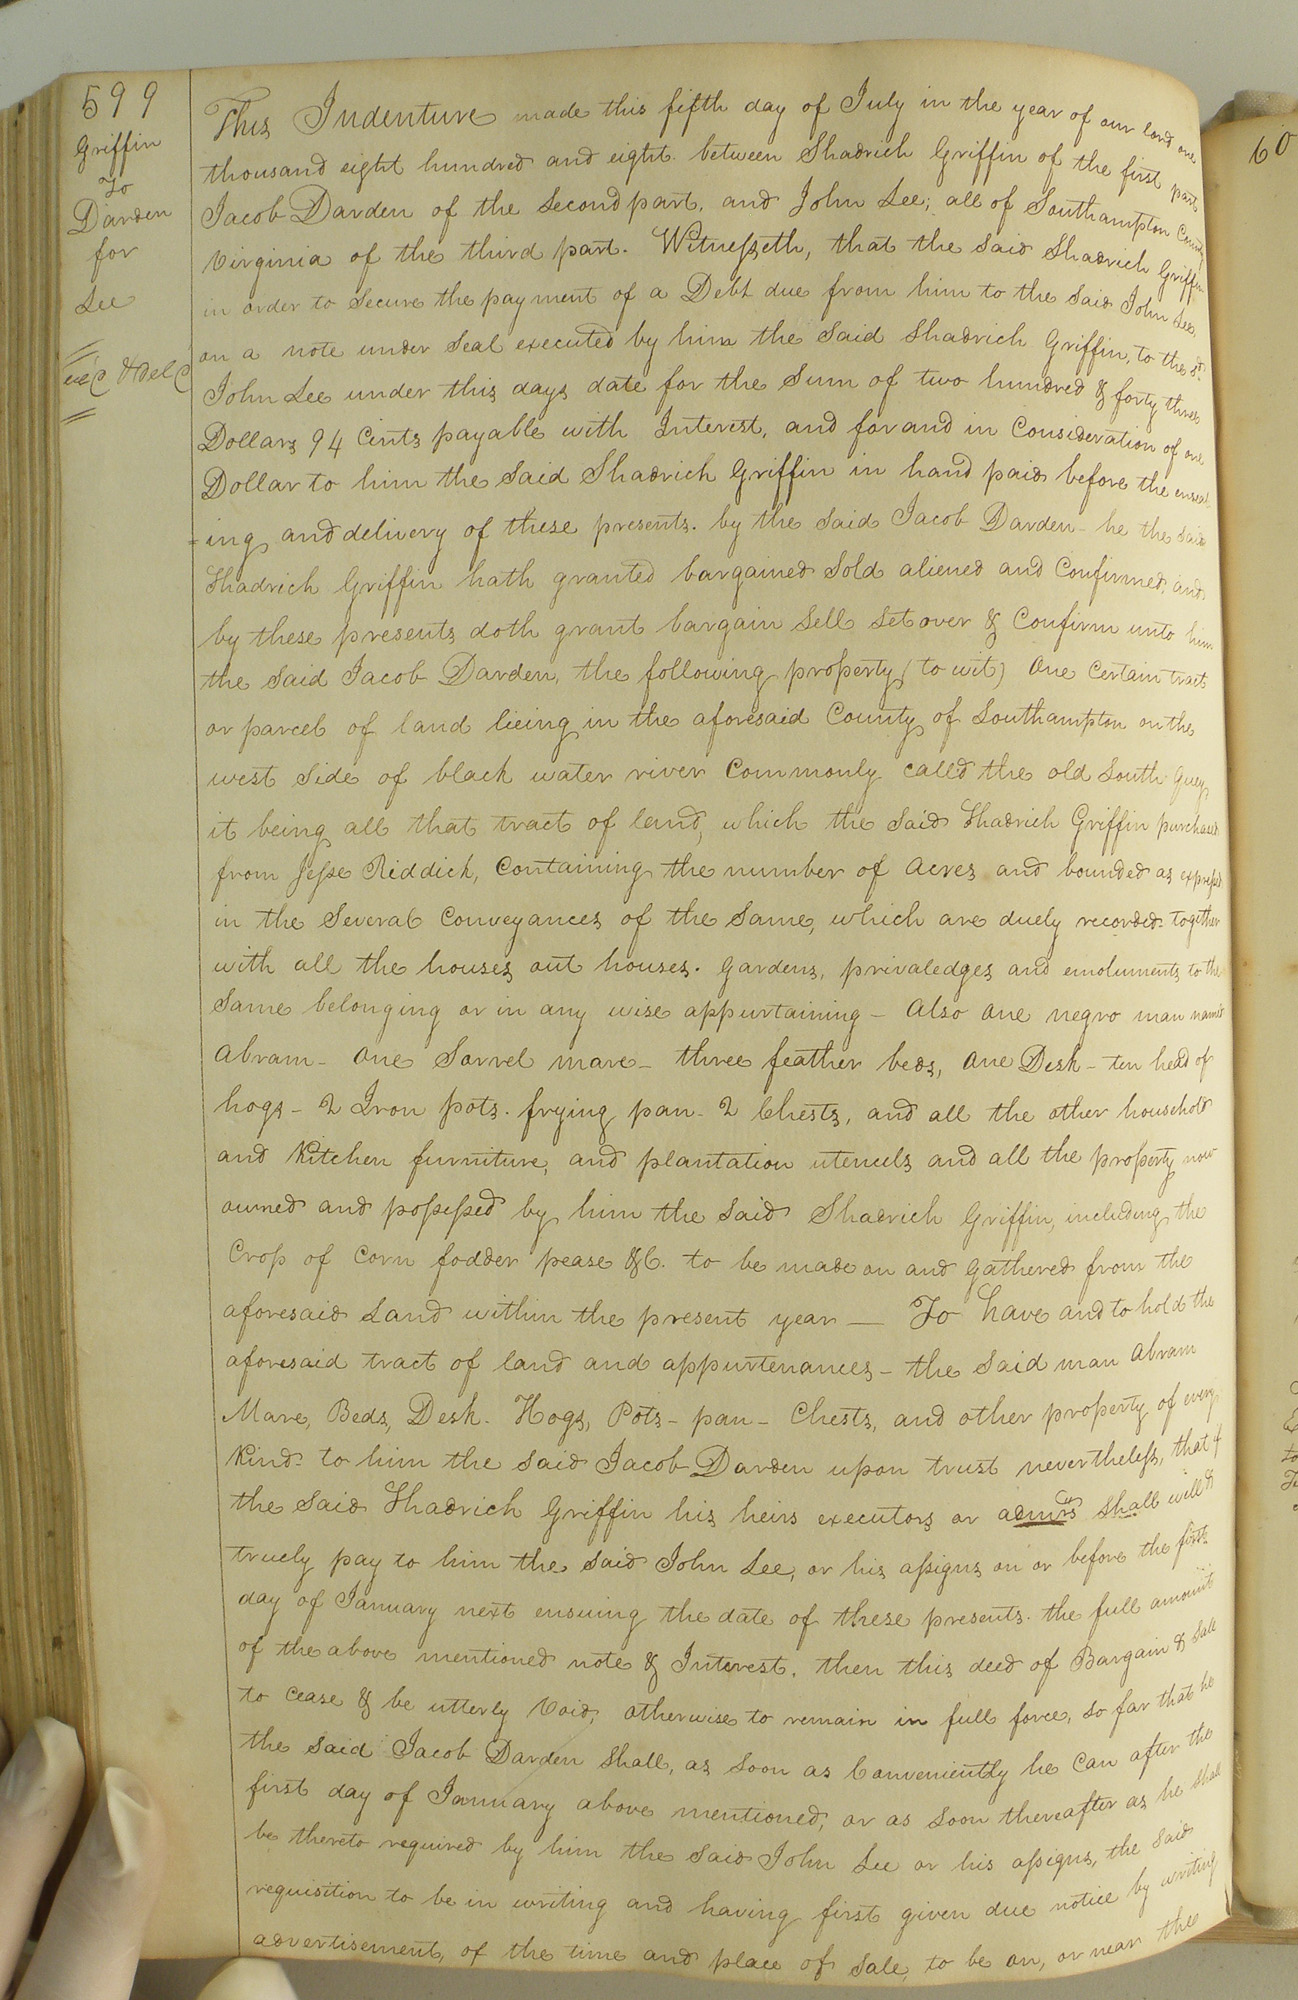 599
Griffin
To
Darden
for
Lee
exc'd & del'd
60
This Indenture made this fifth day of July in the year of our lord one
thousand eight hundred and eight. between Shadrich Griffin of the first part
Jacob Darden of the Second part, and John Lee; all of Southampton County
Virginia of the third part. Witnesseth, that the said Shadrich Griffin
in order to Secure the payment of a Debt due from him to the said John Lee,
on a note under Seal executed by him the said Shadrich Griffin, to the sd.
John Lee under this days date for the Sum of two hundred & forty three
Dollars 94 Cents payable with Interest, and for and in Consideration of one
Dollar to him the Said Shadrich Griffin in hand paid before the enseal
=ing and delivery of these presents. by the Said Jacob Darden - he the said
Shadrich Griffin hath granted bargained Sold aliened and Confirmed, and
by these presents doth grant bargain Sell Set over & Confirm unto him
the Said Jacob Darden, the following property (to wit) One Certain tract
or parcel of land lieing in the aforesaid County of Southampton on the
west Side of black water river Commonly calld the old South Quay
it being all that tract of land, which the Said Shadrich Griffin purchased
from Jesse Riddick, Containing the number of Acres and bounded as expressd
in the Several Conveyances of the Same, which are duely recorded - together
with all the houses out houses. Gardens, privaledges and emoluments to the
Same belonging or in any wise appurtaining - Also One negro man named
Abram - One Sorrel mare - three feather beds, One Desk - ten head of
hogs - 2 Iron pots. frying pan - 2 Chests, and all the other household
and Kitchen furniture, and plantation utencels and all the property now
owned and possessed by him the Said Shadrich Griffin, including the
Crop of Corn fodder pease &C. to be made on and gathered from the
aforesaid Land within the present year — To have and to hold the
aforesaid tract of land and appurtenances - the Said man Abram
Mare, Beds, Desk - Hogs, Pots - pan - Chests, and other property of every
Kind - to him the Said Jacob Darden upon trust nevertheless, that if
the Said Shadrich Griffin his heirs executors or admrs shall will &
truely pay to him the Said John Lee, or his assigns on or before the first
day of January next ensuing the date of these presents. the full amount
of the above mentioned note & Interest, then this deed of Bargain & Sale
to Cease & be utterly Void, otherwise to remain in full force, So far that he
the Said Jacob Darden Shall, as Soon as Conveniently he Can after the
first day of January above mentioned, or as Soon thereafter as he Shall
be thereto required by him the Said John Lee or his assigns, the Said
requisition to be in writing and having first given due notice by writing
advertisement, of the time and place of Sale, to be on, or near the